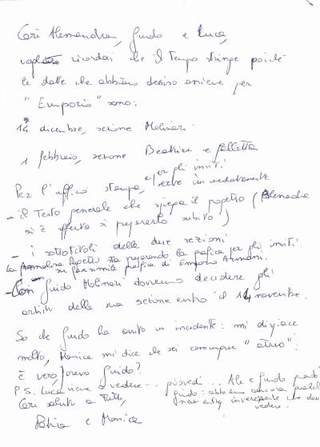 Cari Alessandra, Guido e Luca,
vogliamo ricordarvi che il tempo stringe poiché
le date che abbiamo deciso insieme per
"Emporio" sono:
14 dicembre, sezione Molinari
1 febbraio, sezione Beatrice e
e per gli inviti
Per l'ufficio stampa, serve
- il testo generale che spiega il progetto (Alessandra
si è offerta di prepararlo subito)
- i sottotitoli delle due sezioni
la sta preparando la grafica per gli inviti
grafica di Emporio Armani.
- Con Guido Molinari dovremo decidere gli
artisti della sua sezione entro il 14 novembre.
So che Guido ha avuto un incidente: mi dispiace
molto, Monica mi dice che sei comunque "attivo":
è vero, bravo Guido?
P.S. Luca vieni a vedere... Ale e Guido
Cari saluti a tutti,
vedere.
e Monica